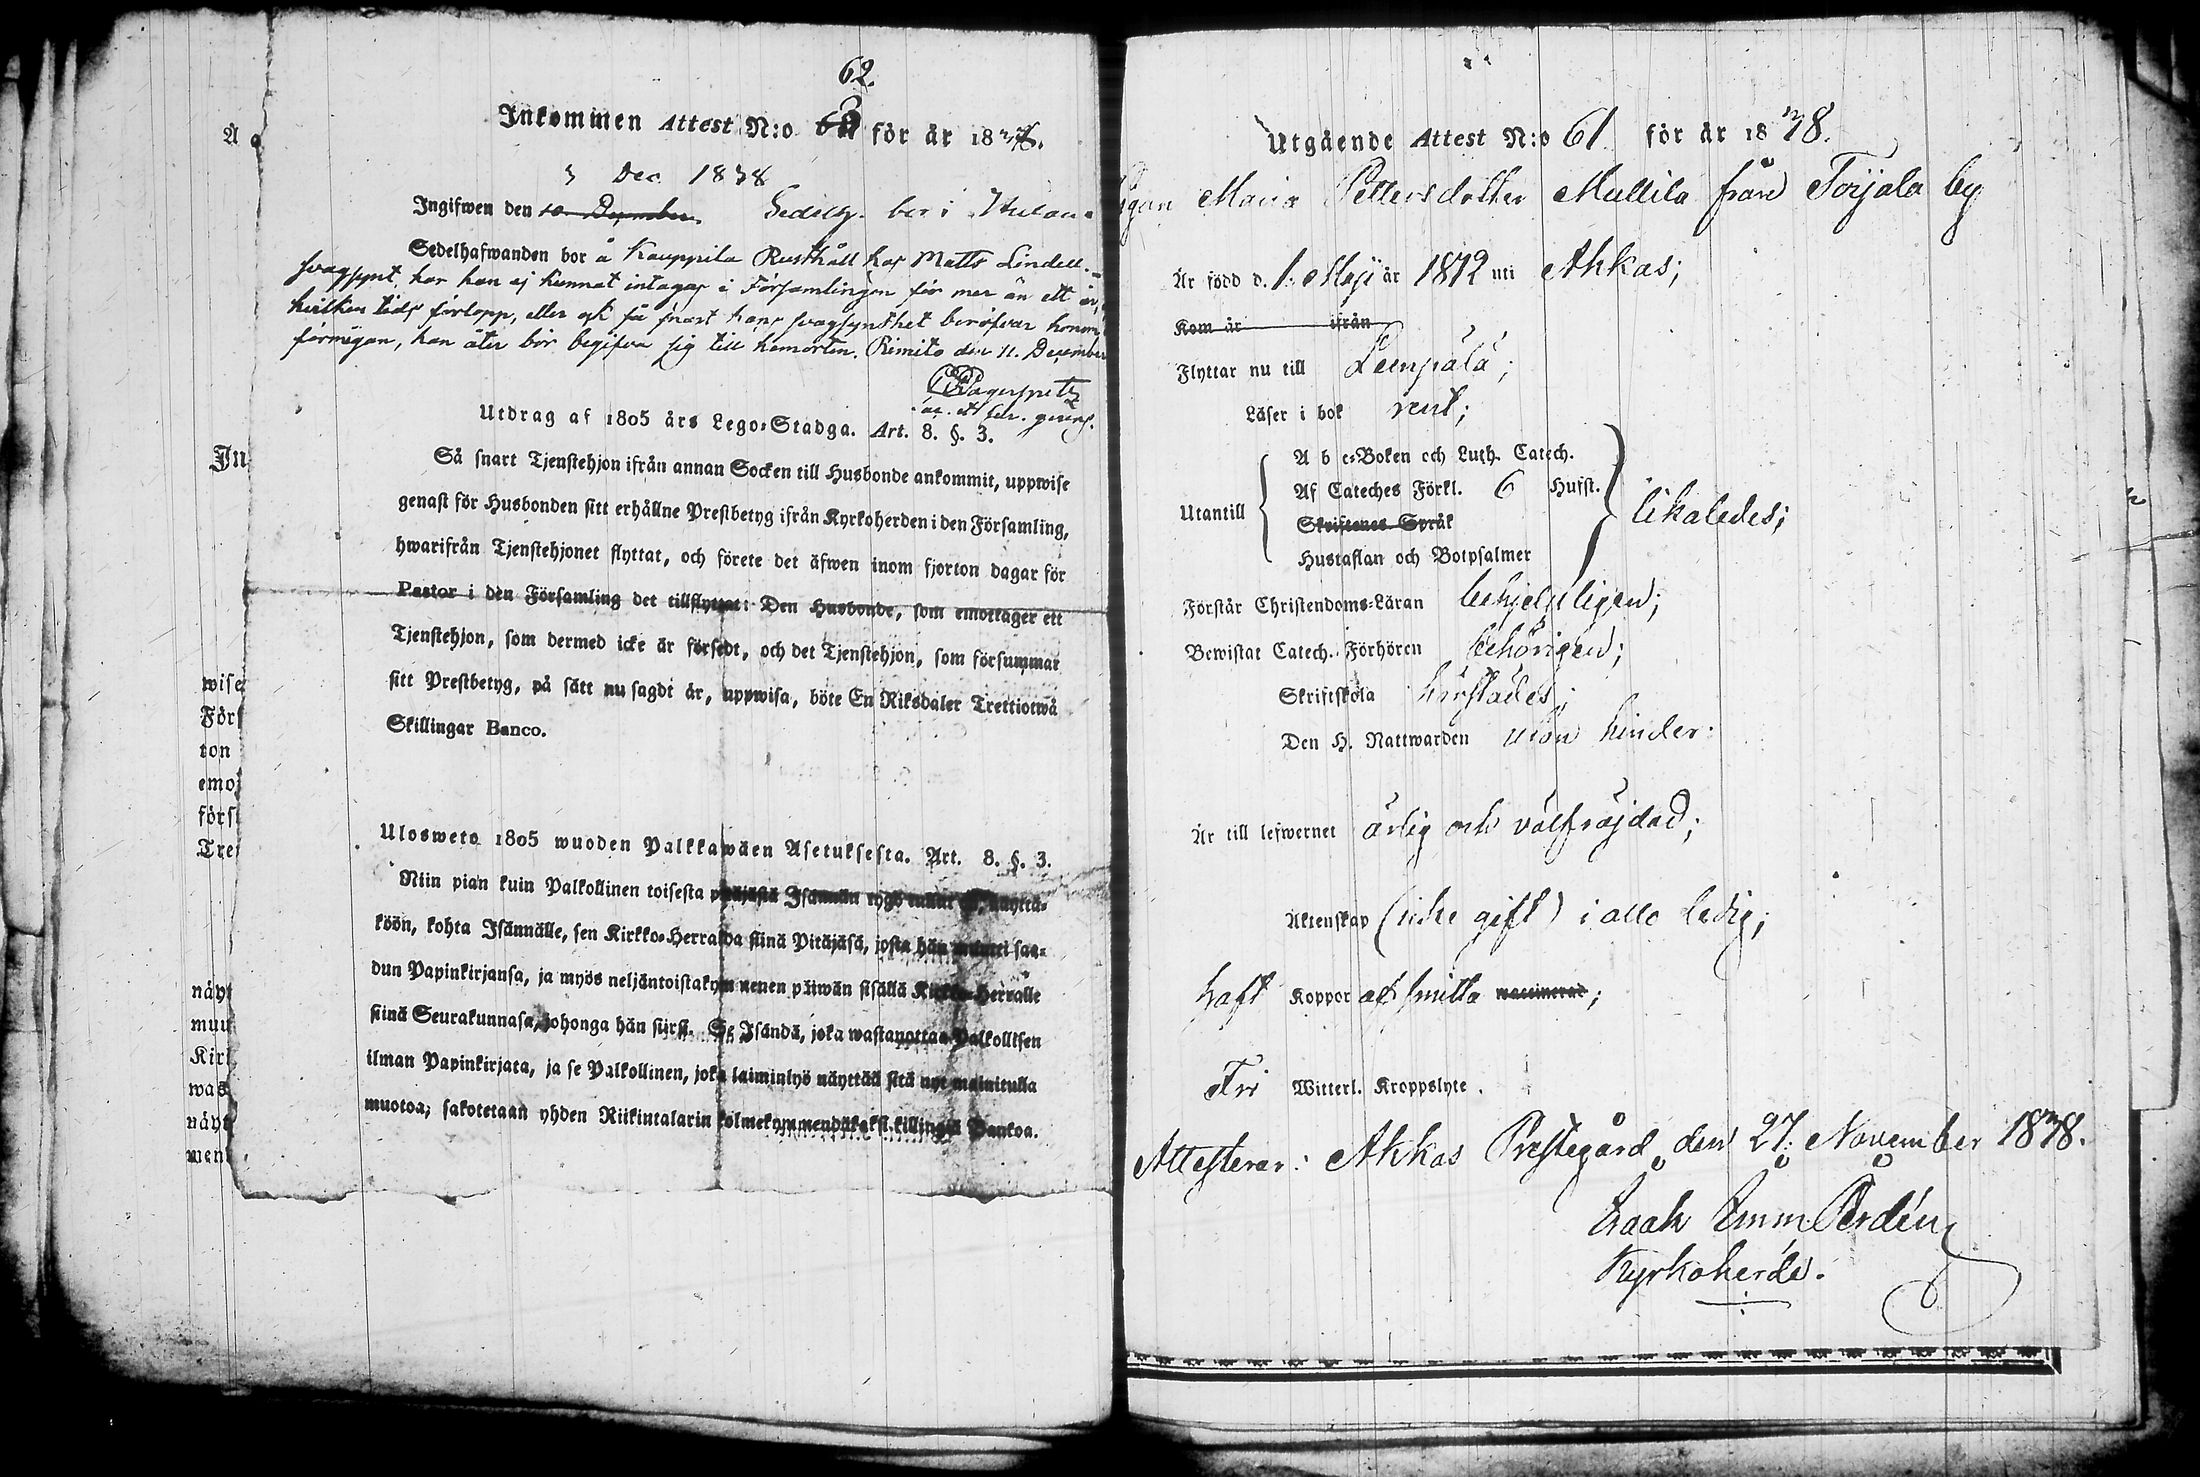 62.
Inkommen Attest N:o för år 18
Dec. 1838
Ingifwen den 10 December Sedelh. bor i
Sedelhafwanden bor å Kauppila Rusthåll hos Matts Lindell.
svagsynt, har han ej kunnat intagas i Församlingen för mer än ett år,
hvilken tids förlopp, eller ock så snart hans svagsynthet beröfvar honom
förmågan, han åter bör begifva sig till hemorten. Rimito den 11. December
Utdrag af 1805 års Lego-Stadga. Art. 8. §. 3.
Så snart Tjenstehjon ifrån annan Socken till Husbonde ankommit, uppwise
genast för Husbonden sitt erhållne Prestbetyg ifrån Kyrkoherden i den Församling,
hwarifrån Tjenstehjonet flyttat, och förete det äfwen inom fjorton dagar för
Pastor i den Församling det tillflyttat: Den Husbonde, som emottager ett
Tjenstehjon, som dermed icke är försedt, och det Tjenstehjon, som försummar
sitt Prestbetyg, på sätt nu sagdt är, uppwisa, böte En Riksdaler Trettiotwå
Skillingar Banco.
Ulosweto 1805 wuoden Palkkawäen Asetuksesta. Art. 8. §. 3.
Niin pian kuin Palkollinen toisesta pitäjästä Isännän tygö tullut on, näyttä-
köön, kohta Isännälle, sen Kirkko-Herralda siinä Pitäjäsä, josta hän muutti saa-
dun Papinkirjansa, ja myös neljäntoistakymmenen päiwän sisällä Kirkko-Herralle
siinä Seurakunnasa, johonga hän siirsi. Se Isändä, joka wastanottaa Palkollisen
ilman Papinkirjata, ja se Palkollinen, joka laiminlyö näyttää sitä nyt mainitulla
muotoa, sakotetaan yhden Riikintalarin kolmekymmendäkaksi killingiä Bankoa.
A
In
wise
För
ton
emot
förs
Tre
näyt
muu
Kir
was
näyt
men
Utgående Attest N:o 61 för år 1838.
Pigan Maria Pettersdotter Mullila från Toijala by
Är född d. 1. Maji år 1812 uti Akkas;
Kom år ifrån
Flyttar nu till Lempälä;
Läser i bok rent;
A b c-Boken och Luth. Catech.
Af Cateches Förkl. 6 Hufst.
Utantill
Skriftenes Språk
likaledes;
Hustaflan och Botpsalmer
Förstår Christendoms-Läran behjelpligen;
Bewistat Catech. Förhören behörigen;
Skriftskola
Den H. Nattwarden utan hinder:
Är till lefwernet ärlig och välfräjdad;
Äktenskap (icke gift) i allo ledig;
haft Koppor af smitta waccinerad;
Fri Witterl. Kroppslyte.
Attesterar: Akkas Prestegård den 27. November 1838.
Isaak Emm. Perdén
Kyrkoherde.